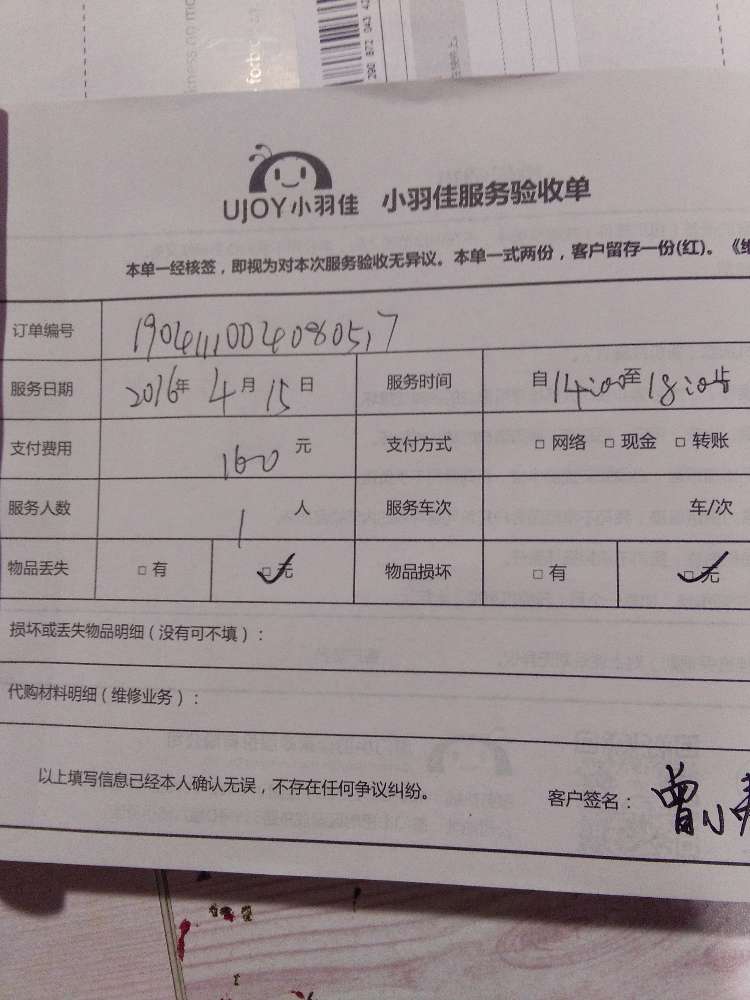 UJOY小羽佳 小羽佳服务验收单
本单一经核签，即视为对本次服务验收无异议。本单一式两份，客户留存一份(红)。《维
订单编号 1904111004080517
服务日期 2016年 4月 15日 服务时间 自14:00至18:00止
支付费用 160元 支付方式 □ 网络 □ 现金 □ 转账
服务人数 1人 服务车次 车/次
物品丢失 □ 有 □ 无 物品损坏 □ 有 □ 无
损坏或丢失物品明细（没有可不填）：
代购材料明细（维修业务）：
以上填写信息已经本人确认无误，不存在任何争议纠纷。 客户签名：曾小